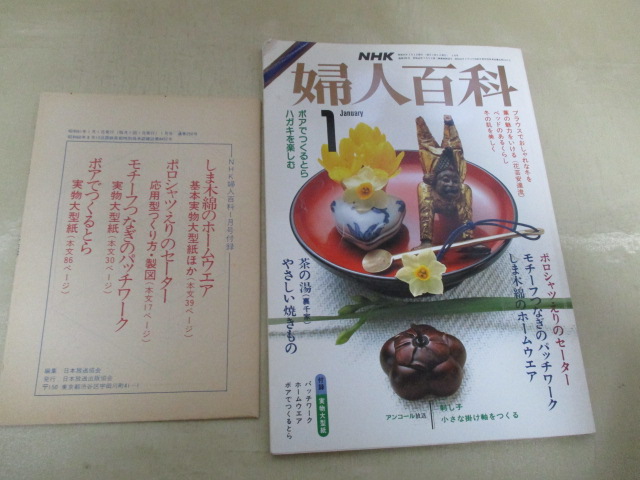 NHK
婦人百科
1
January
ボアでつくるとら
ハガキを楽しむ
ブラウスでおしゃれな冬を
葉の魅力をいける(花芸安達流)
ペットのあるくらし
冬の肌を美しく
茶の湯(裏千家)
やさしい焼きもの
ポロシャツえりのセーター
モチーフつなぎのパッチワーク
しま木綿のホームウエア
付録 実物大型紙
パッチワーク
ホームウエア
ボアでつくるとら
アンコール放送
刺し子
小さな掛け軸をつくる
NHK婦人百科1月号付録
しま木綿のホームウエア
基本実物大型紙ほか(本文39ページ)
ポロシャツえりのセーター
応用型つくり方・製図(本文17ページ)
モチーフつなぎのパッチワーク
実物大型紙(本文30ページ)
ボアでつくるとら
実物大型紙(本文86ページ)
編集 日本放送協会
発行 日本放送出版協会
〒150 東京都渋谷区宇田川町41-1